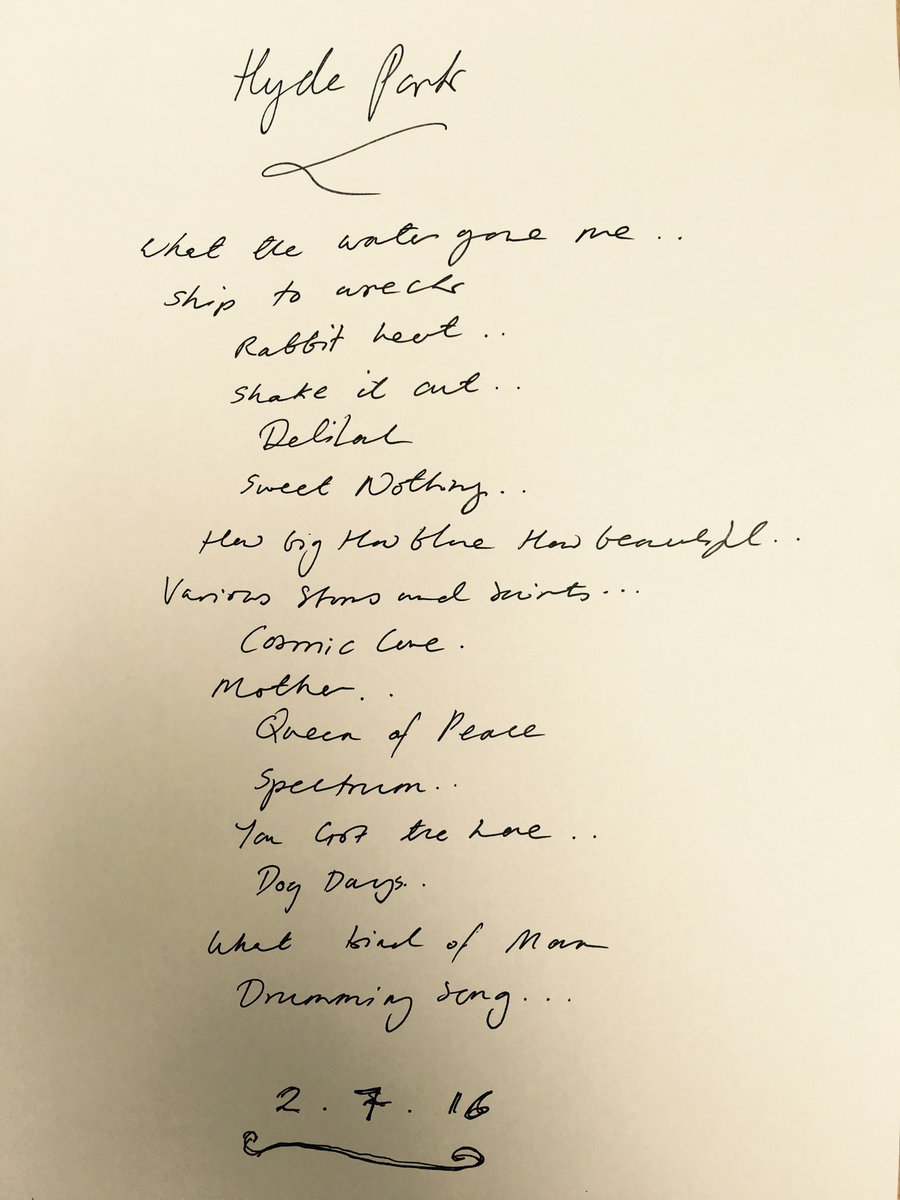 Hyde Park
What the water gave me..
Ship to wreck
Rabbit heart..
Shake it out..
Delilah
Sweet Nothing..
How big How blue How beautiful..
Various Storms and Saints...
Cosmic Love.
Mother..
Queen of Peace
Spectrum..
You Got the Love..
Dog Days..
What kind of Man
Drumming Song...
2.7.16